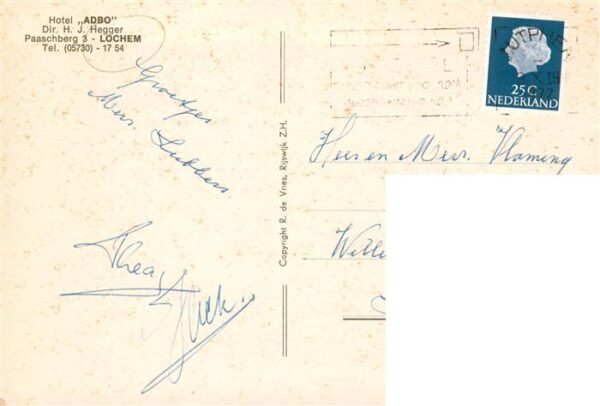 Hotel „ADBO"
Dir. H. J. Hegger
Paaschberg 3 - LOCHEM
Tel. (05730) - 17 54
Groetjes
Mevr. Lubbers.
Thea
Copyright R. de Vries, Rijswijk Z.H.
ZUTPHEN
25c
NEDERLAND
Heer en Mevr. Vlaming